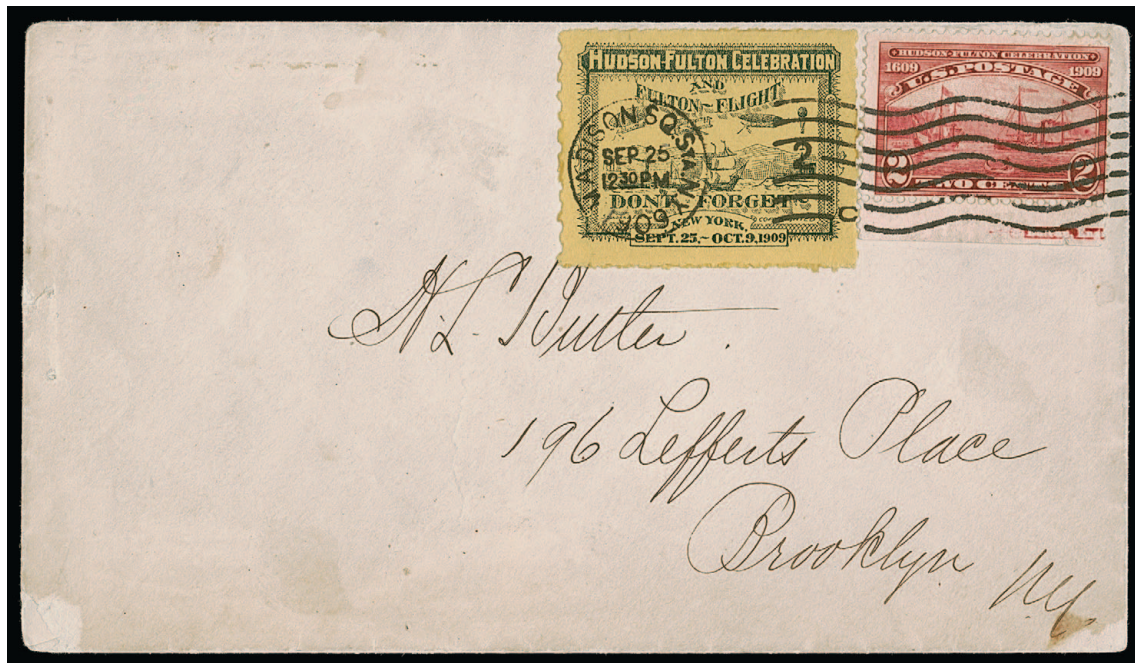 HUDSON-FULTON CELEBRATION
AND
FULTON-FLIGHT
2
DON'T FORGET
NEW YORK,
SEPT. 25,- OCT. 9, 1909
MADISON SQ. STA. N.Y.
SEP 25
12 30 PM
1909
C
HUDSON-FULTON CELEBRATION
1609 1909
U.S. POSTAGE
2 2
TWO CENTS
H. L. Butler.
196 Lefferts Place
Brooklyn
NY